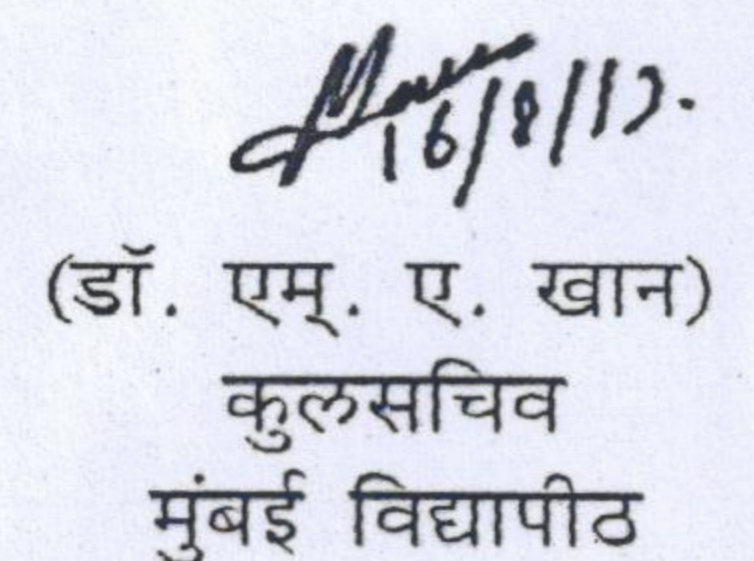 16/8/17.
(डॉ. एम्. ए. खान)
कुलसचिव
मुंबई विद्यापीठ